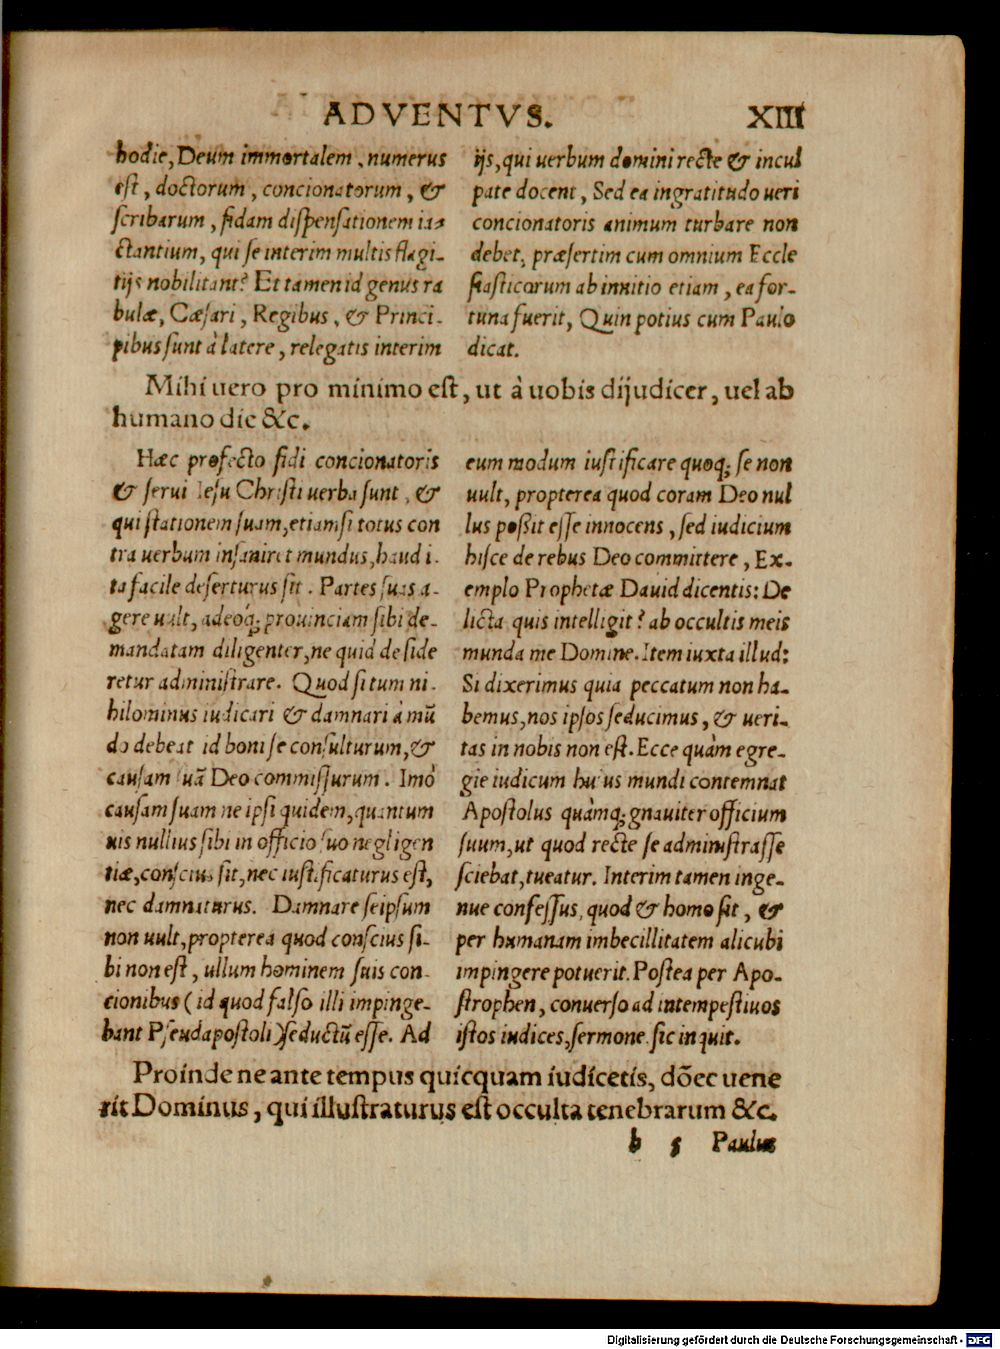 ADVENTVS. XIII
hodie, Deum immortalem, numerus
est, doctorum, concionatorum, &
scribarum, fidam dispensationem ia⸗
ctantium, qui se interim multis flagi-
tijs nobilitant? Et tamen id genus ra
bulæ, Cæsari, Regibus, & Princi-
pibus sunt à latere, relegatis interim
ijs, qui uerbum domini recte & incul
pate docent, Sed ea ingratitudo ueri
concionatoris animum turbare non
debet, præsertim cum omnium Eccle
siasticorum ab innitio etiam, ea for-
tuna fuerit, Quin potius cum Paulo
dicat.
Mihi uero pro minimo est, ut à uobis dijudicer, uel ab
humano die &c.
Hæc profecto fidi concionatoris
& serui Iesu Christi uerba sunt, &
qui stationem suam, etiamsi totus con
tra uerbum insaniret mundus, haud i-
ta facile deserturus sit. Partes suas a-
gere uult, adeoq́; prouinciam sibi de-
mandatam diligenter, ne quid deside
retur administrare. Quod si tum ni-
hilominus iudicari & damnari à mū
do debeat id boni se consulturum, &
causam suā Deo commissurum. Imò
causam suam ne ipsi quidem, quantum
uis nullius sibi in officio suo negligen
tiæ, conscius sit, nec iustificaturus est,
nec damnaturus. Damnare seipsum
non uult, propterea quod conscius si-
bi non est, ullum hominem suis con-
cionibus (id quod falso illi impinge-
bant Pseudapostoli) seductū esse. Ad
eum modum iustificare quoq; se non
uult, propterea quod coram Deo nul
lus poßit esse innocens, sed iudicium
hisce de rebus Deo committere, Ex-
emplo Prophetæ Dauid dicentis: De
licta quis intelligit? ab occultis meis
munda me Domine. Item iuxta illud:
Si dixerimus quia peccatum non ha-
bemus, nos ipsos seducimus, & ueri-
tas in nobis non est. Ecce quàm egre-
gie iudicum huius mundi contemnat
Apostolus quàmq; gnauiter officium
suum, ut quod recte se administrasse
sciebat, tueatur. Interim tamen inge-
nue confessus, quod & homo sit, &
per humanam imbecillitatem alicubi
impingere potuerit. Postea per Apo-
strophen, conuerso ad intempestiuos
istos iudices, sermone sic inquit.
Proinde ne ante tempus quicquam iudicetis, dōec uene
rit Dominus, qui illustraturus est occulta tenebrarum &c.
b 5 Paulus
Digitalisierung gefördert durch die Deutsche Forschungsgemeinschaft - DFG